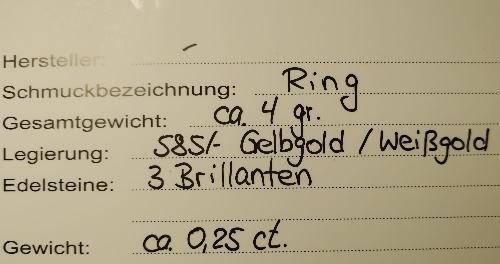 Hersteller: -
Schmuckbezeichnung: Ring
Gesamtgewicht: ca. 4 gr.
Legierung: 585/- Gelbgold / Weißgold
Edelsteine: 3 Brillanten
Gewicht: ca. 0,25 ct.